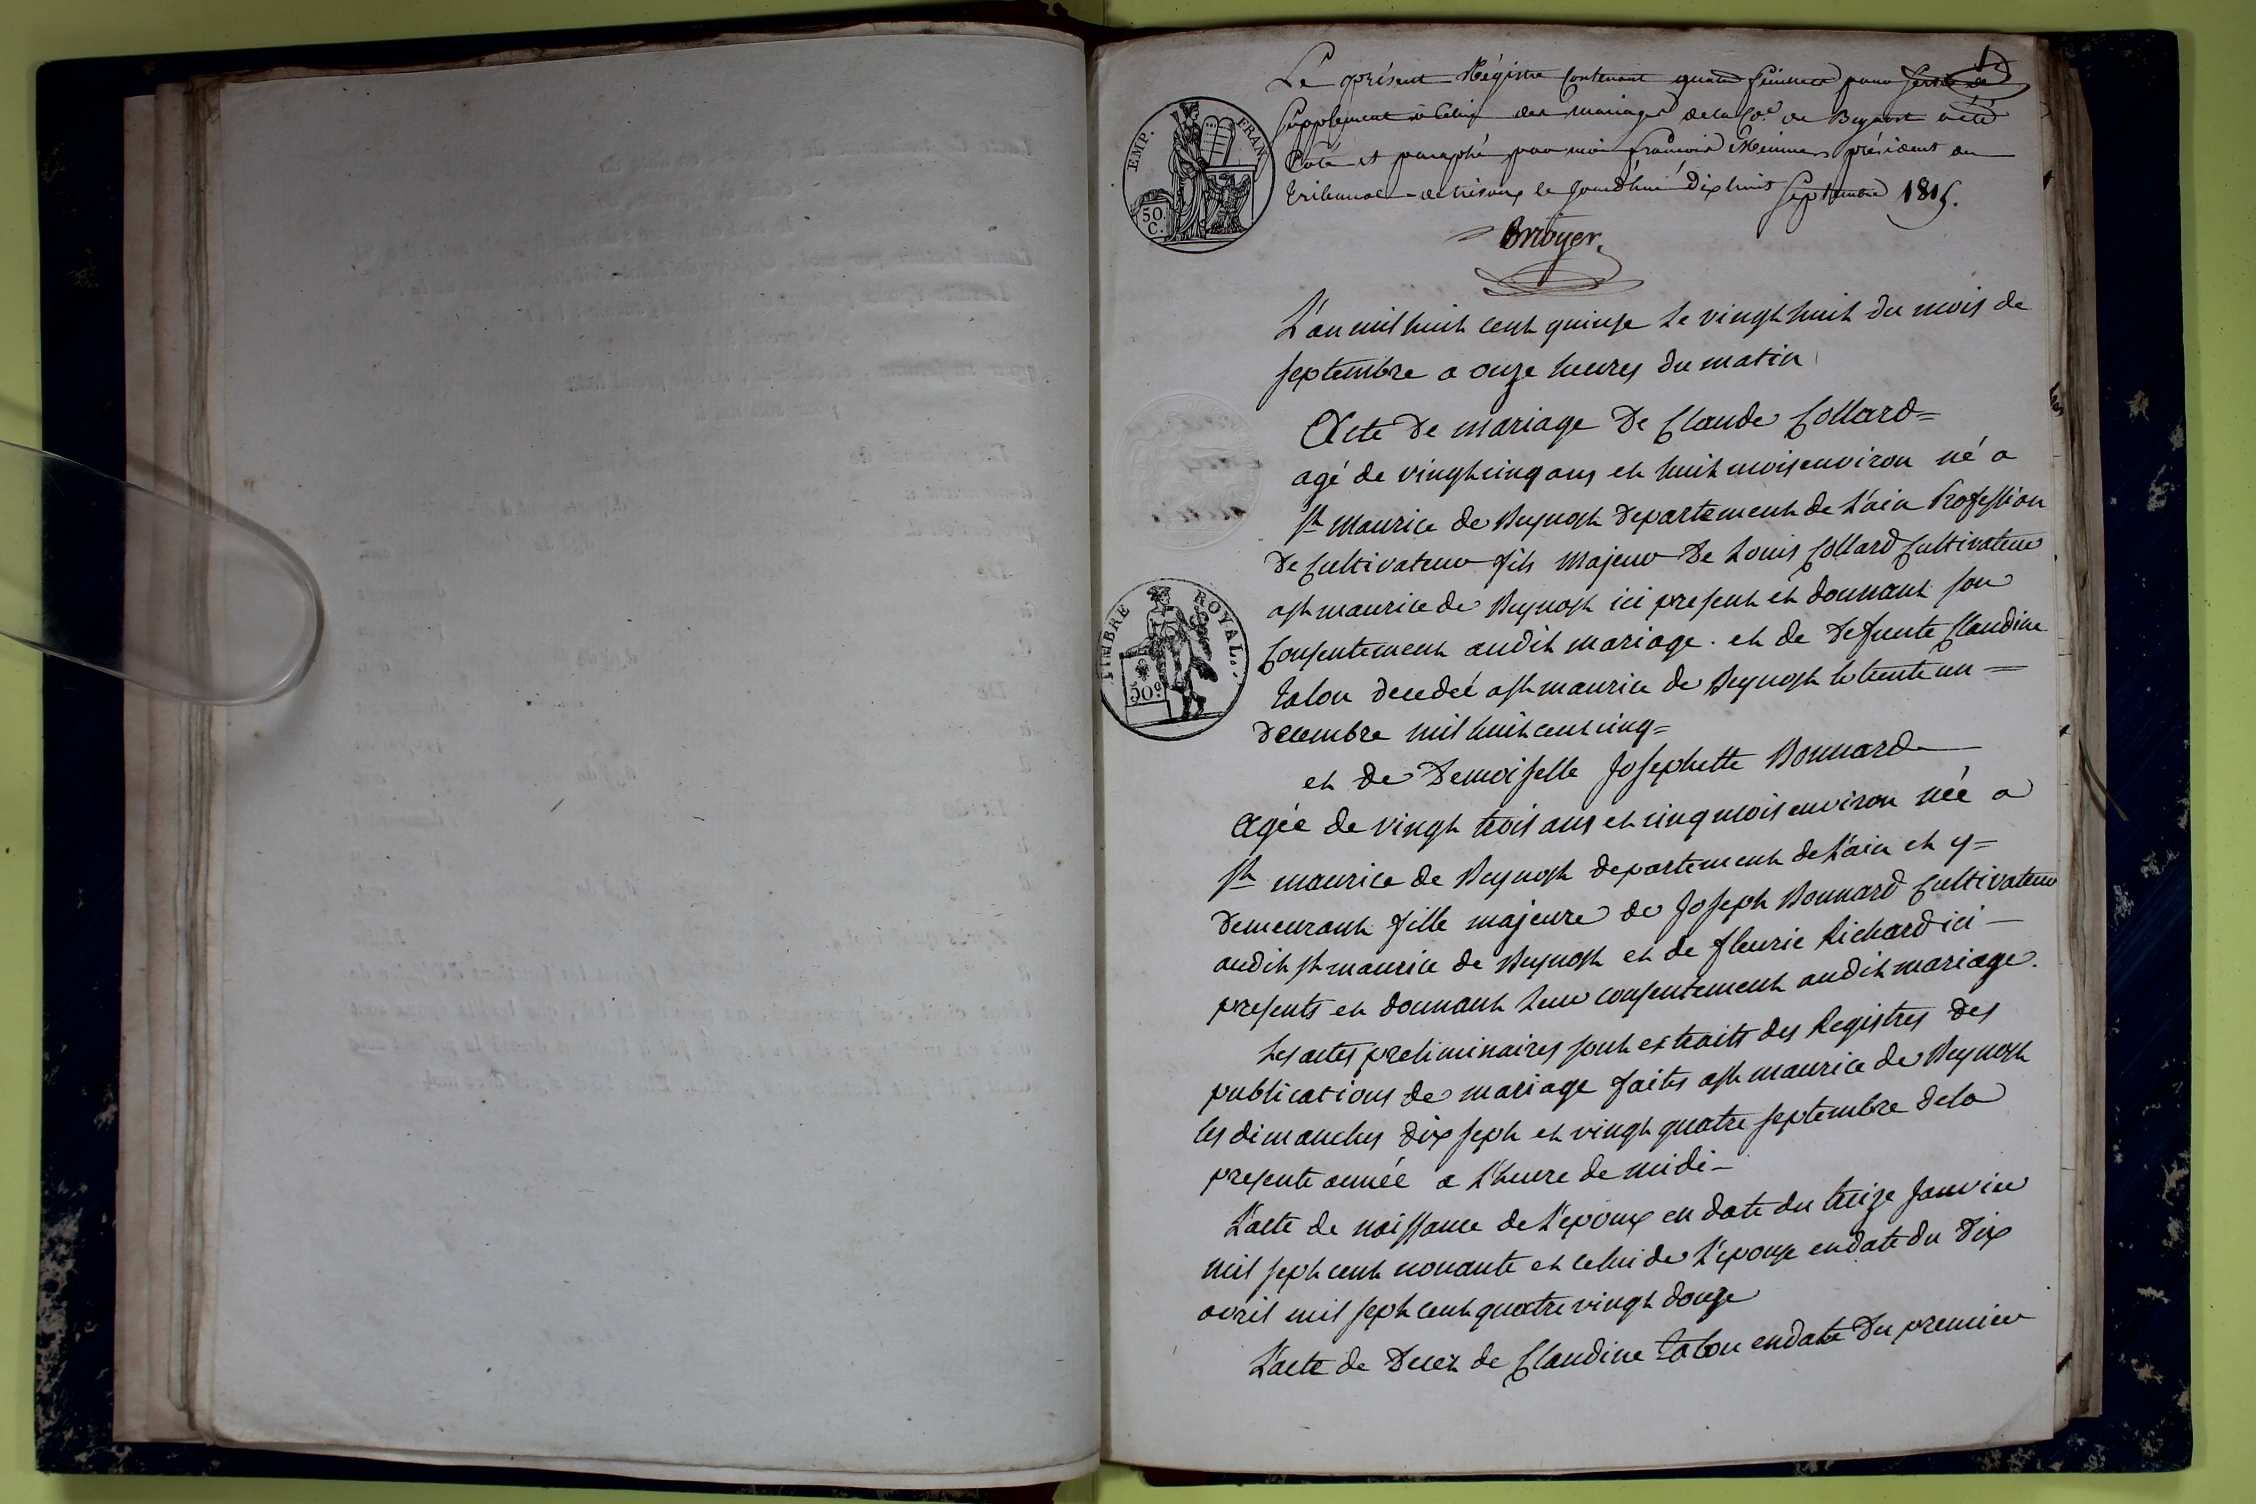 Le présent Régistre Contenant quatre feuillets pour servir de
supplement à celui des mariages de la Cne de Beynost a été
Coté et paraphé par moi françois président au
tribunal de trévoux le jourdhui dix huit Septembre 1815.
EMP. FRAN.
50. C.
L'an mil huit cent quinze Le vingt huit du mois de
septembre a onze heures du matin
Acte De mariage De Claude Collard =
agé de vingt cinq ans et huit mois environ né a
st Maurice de Beynost Departement de L'ain Profession
De Cultivateur fils Majeur De Louis Collard Cultivateur
a st maurice de Beynost ici present et donnant son
Consentement audit mariage. et de Defunte Claudine
TIMBRE ROYAL.
50c.
Talon decedeé a st maurice de Beynost le trente un =
Decembre mil huit cent cinq =
et de Demoiselle Josephette Bonnard
Agée de vingt trois ans et cinq mois environ née a
st maurice de Beynost departement de L'ain et y =
Demeurant fille majeure de Joseph Bonnard Cultivateur
audit st maurice de Beynost et de fleurie Richard ici
presents et donnant leur consentement audit mariage.
Les actes preliminaires sont extraits des Registres des
publications de mariage faites a st maurice de Beynost
les dimanches dix sept et vingt quatre septembre de la
presente année a L'heure de midi –
L'acte de naissance de L'epoux en date du treize Janvier
mil sept cent nonante et celui de L'épouse en date du Dix
avril mil sept cent quatre vingt douze
L'acte de Decez de Claudine Talon en date Du premier